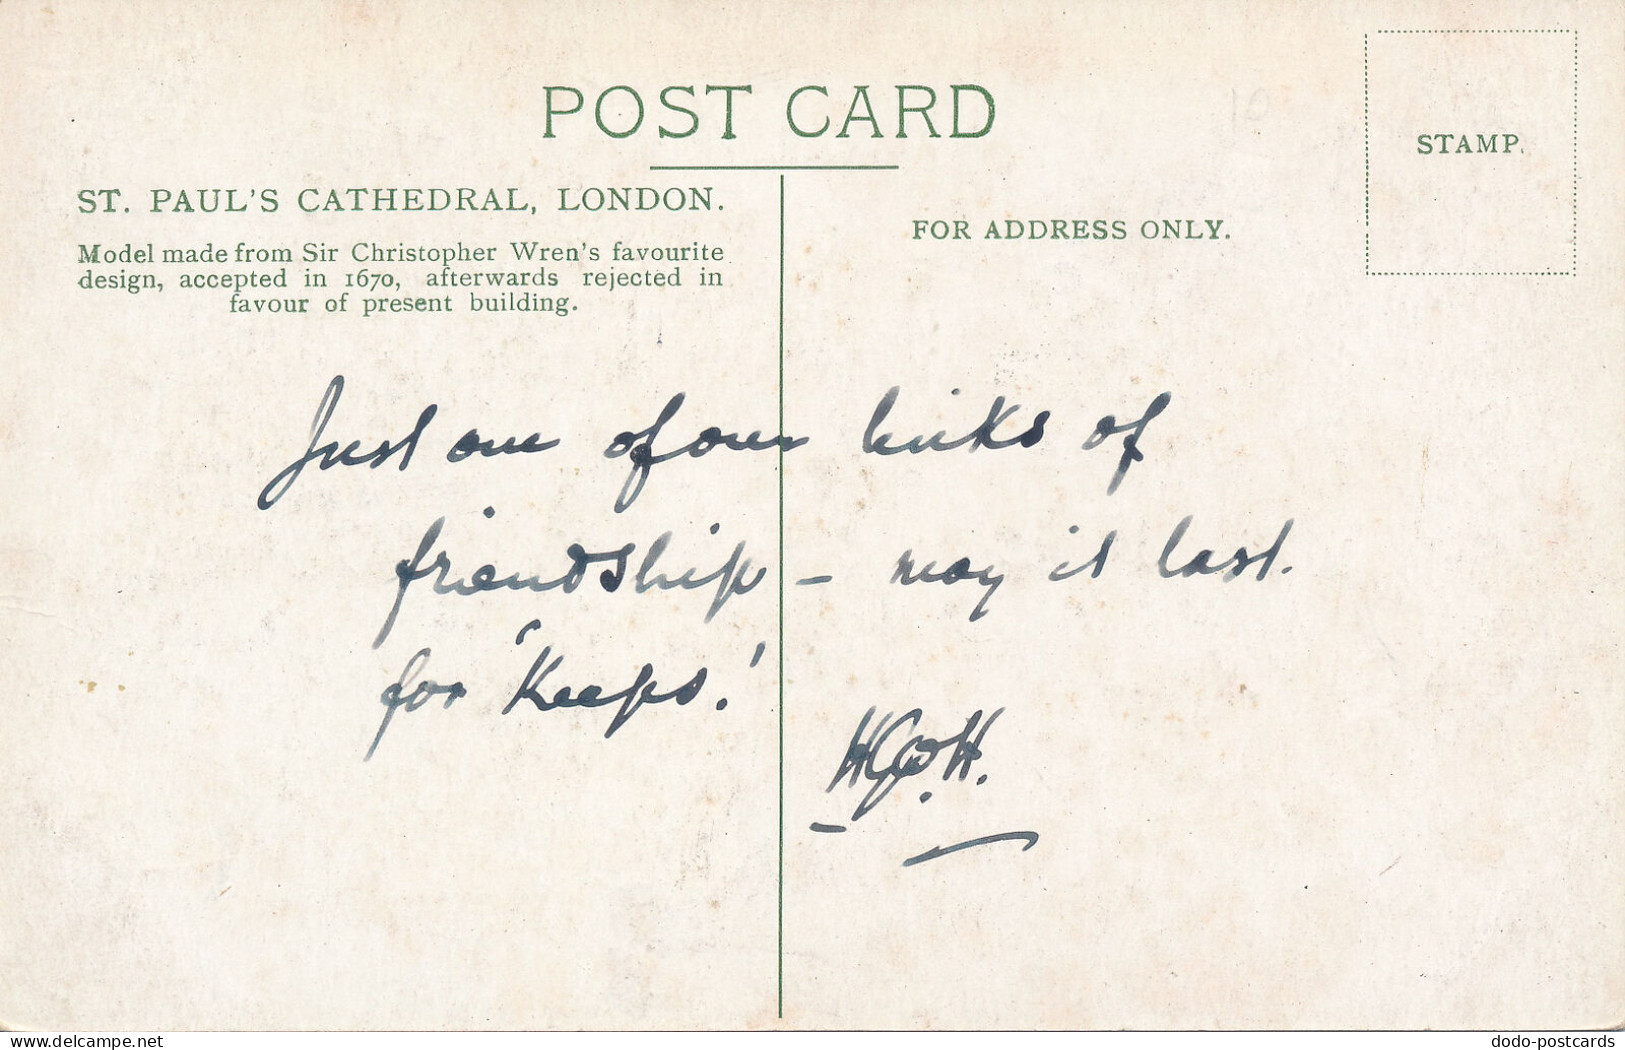 POST CARD
STAMP.
ST. PAUL'S CATHEDRAL, LONDON.
Model made from Sir Christopher Wren's favourite
design, accepted in 1670, afterwards rejected in
favour of present building.
FOR ADDRESS ONLY.
10
Just one of our links of
friendship – may it last.
for 'Keeps.'
H.G.W.H.
delcampe.net
dodo-postcards